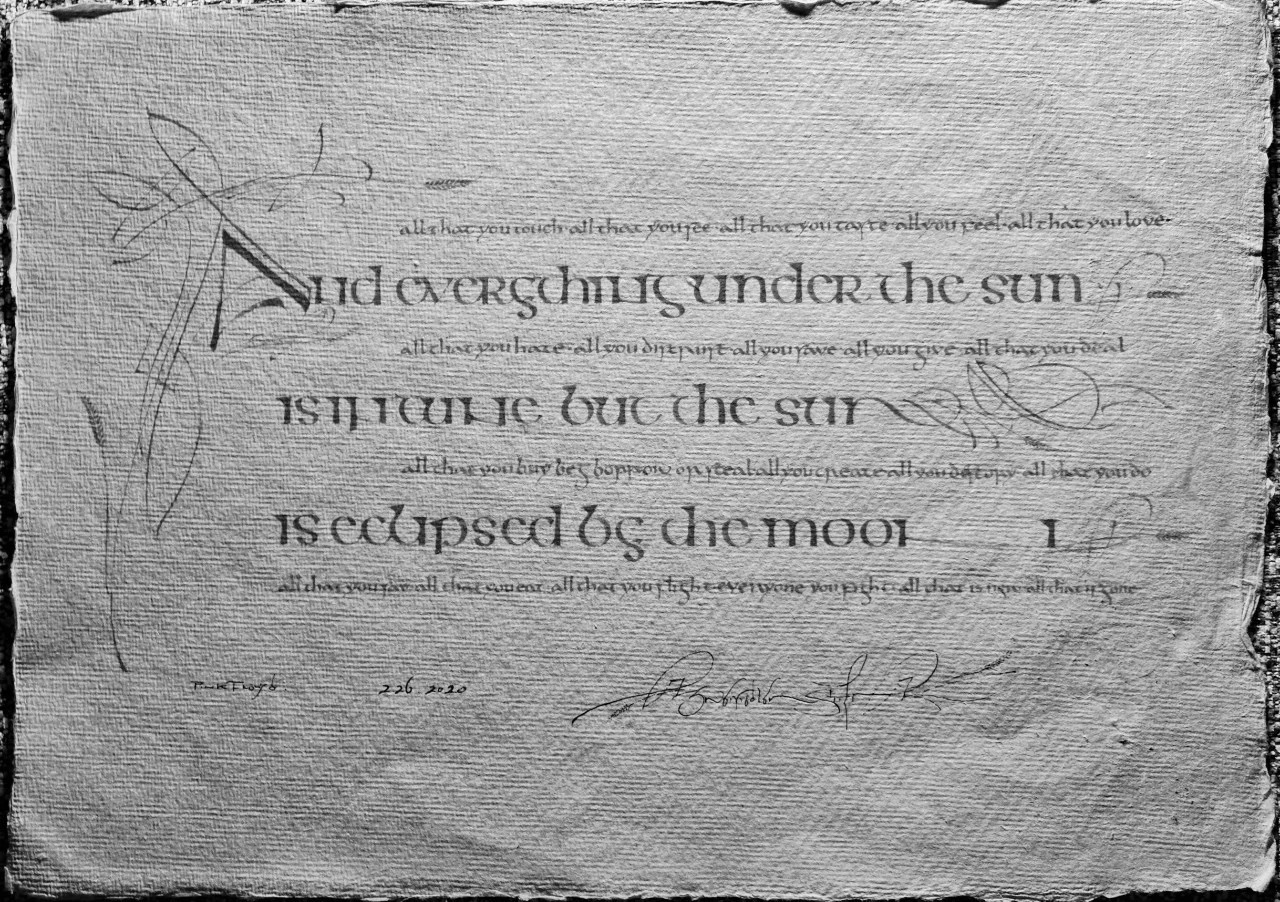 all that you touch · all that you see · all that you taste · all you feel · all that you love ·
And everything under the sun
all that you hate · all you distrust · all you save · all you give · all that you deal
is in tune but the sun
all that you buy beg borrow or steal all you create all you destroy · all that you do
is eclipsed by the moon
all that you say all that you eat all that you slight everyone you fight · all that is now all that is gone
Pink Floyd 226 2020